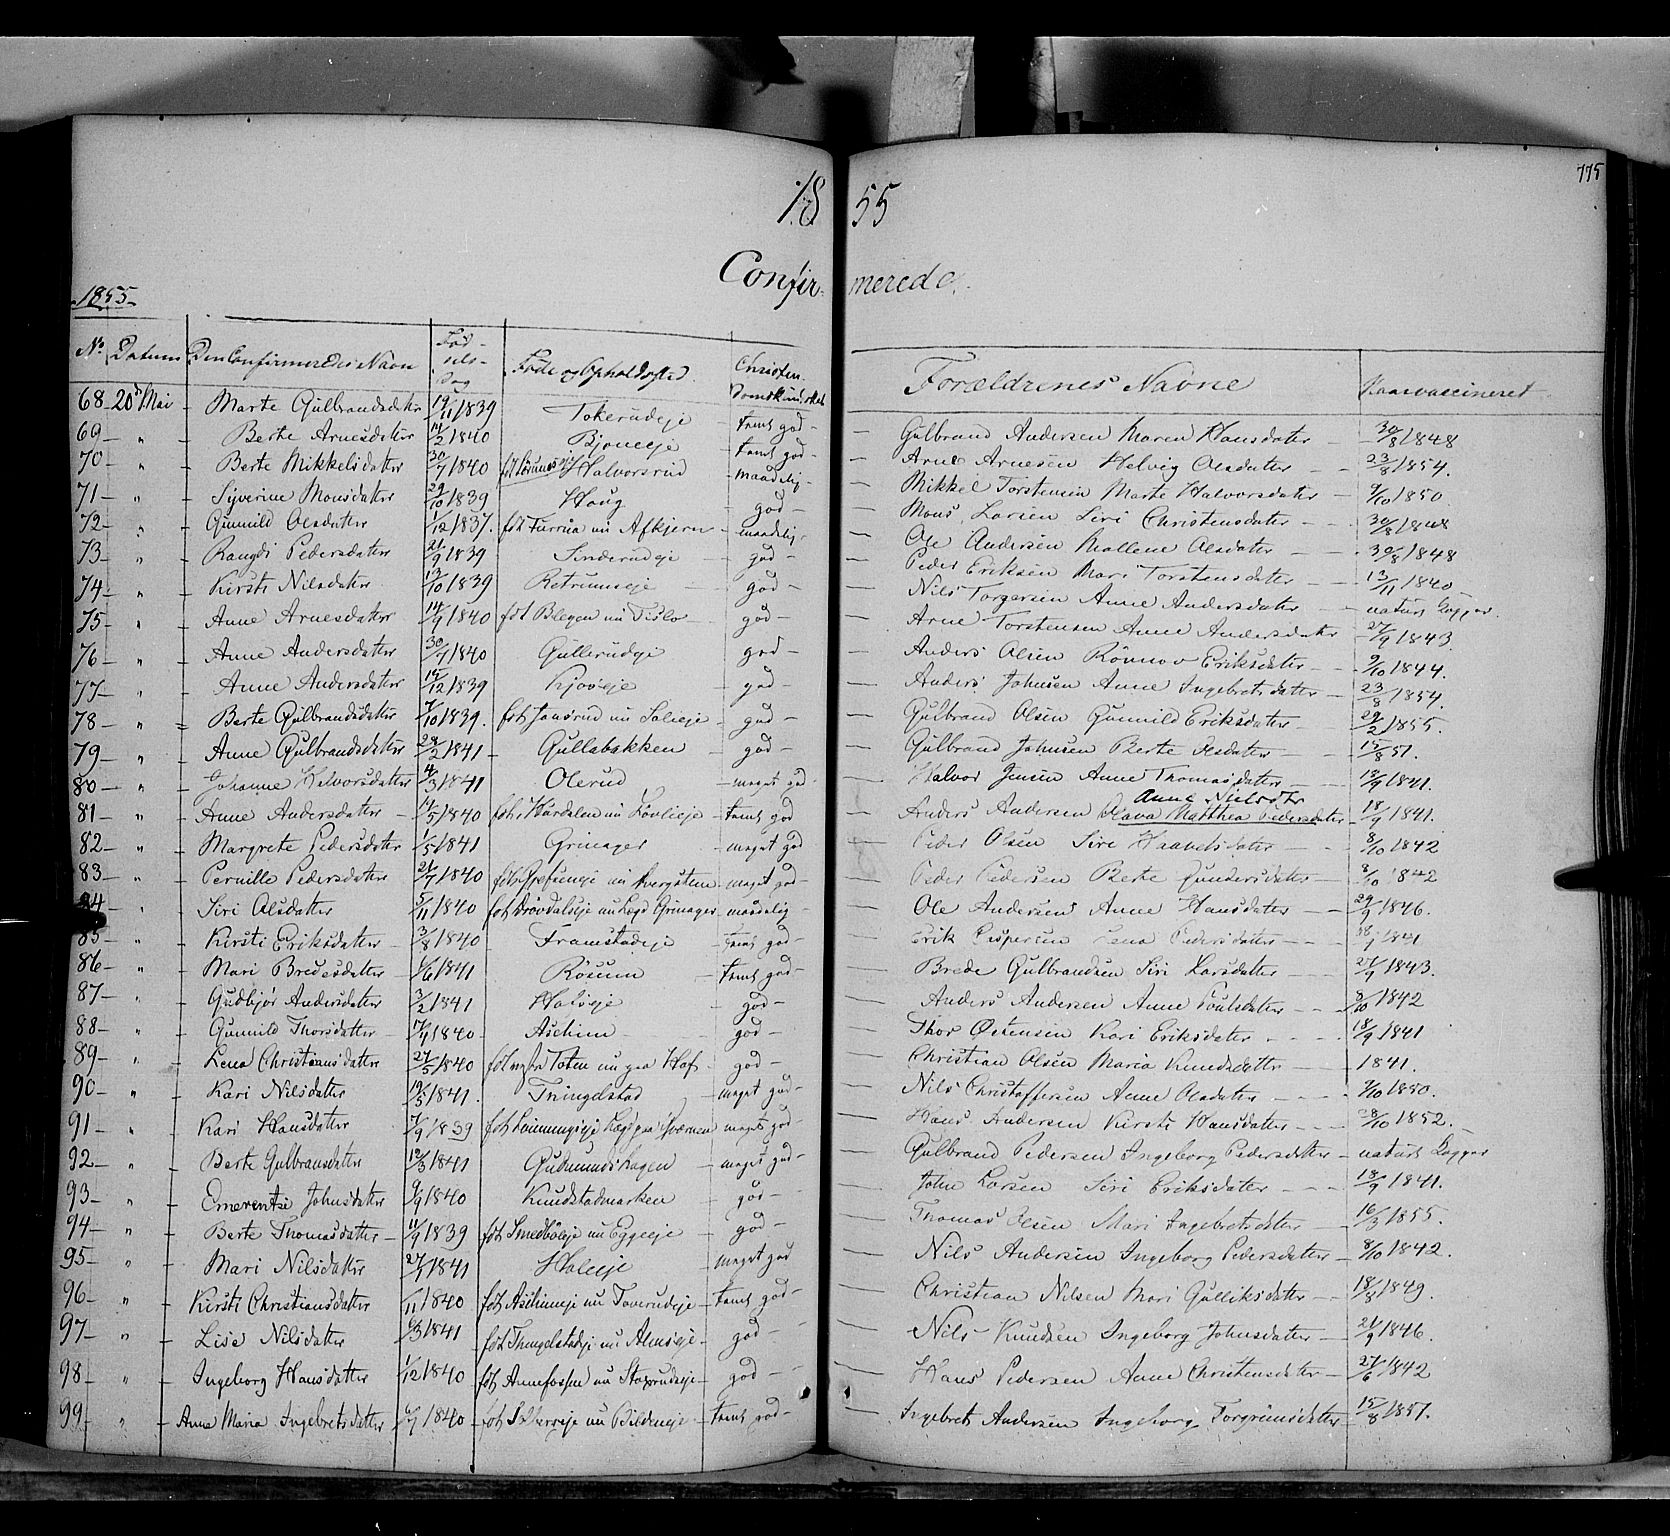 775
18 55
Confir- merede.
1855.
No. Datum Den Confirmeredes Navn Fød-sels-dag Føde og Opholdssted. Christendomskundskab Forældrenes Navne Naarvaccineret
68 20d Mai Marte Gulbrandsdatter 19/11 1839 Tokerudeje temt god Gulbrand Andersen Maren Hansdatter 30/8 1848
69 " Berte Arnesdatter 14/2 1840 Bjoneeje temt god Arne Arnesen Helvig Olsdatter 23/8 1854.
70 " Berte Mikkelsdatter 30/7 1840 Halvorsrud maadelig Mikkel Torstensen Marte Halvorsdatter 9/10 1850
71 " Syverine Monsdatter 29/10 1839 Haug god Mons Larsen Siri Christensdatter 30/8 1848
72 " Gunnild Olsdatter 1/12 1837. føt Furrua nu Afkjern maadelig Ole Andersen Mallene Olsdatter 30/8 1848
73 " Rangdi Pedersdatter 21/9 1839 Sinderudeje god Peder Eriksen Mari Torstensdatter 13/11 1840
74 " Kirsti Nilsdatter 13/10 1839 god Nils Torgersen Anne Andersdatter naturl Kopper
75 " Anne Arnesdatter 14/9 1840 føt Blegen nu Tislov god Arne Torstensen Anne Andersdatter 27/9 1843.
76 " Anne Andersdatter 30/7 1840 Gullerudeje god Anders Olsen Rönnov Eriksdatter 9/10 1844.
77 " Anne Andersdatter 15/12 1839 Kjoseje god Anders Johnsen Anne Ingebretsdatter 23/8 1854.
78 " Berte Gulbrandsdatter 7/10 1839. føt Jonsrud nu Solieje god Gulbrand Olsen Gunnild Eriksdatter 29/2 1855.
79 " Anne Gulbrandsdatter 28/2 1841 Gullabakken god Gulbrand Johnsen Berte Olsdatter 15/8 51.
80 " Johanne Halvorsdatter 4/3 1841 Olerud meget god Halvor Jensen Anne Thomasdatter 18/9 1841.
Anne Nielsdtr
81 " Anne Andersdatter 14/5 1840 føt i Hurdalen nu Lövlieje temt god Anders Andersen Olava Matthea Pedersdater 18/9 1841.
82 " Margrete Pedersdatter 1/5 1841 Grinager meget god Peder Olsen Siri Haavelsdatter 8/10 1842
83 " Pernille Pedersdatter 21/7 1840 meget god Peder Pedersen Berte Gundersdatter 8/10 1842
84 " Siri Olsdatter 5/11 1840 føt Drövdalseje nu Lægd Grinager maadelig Ole Andersen Anne Hansdatter 29/9 1846.
85 " Kirsti Eriksdatter 3/8 1840 Framstadeje temt god Erik Caspersen Lena Pedersdatter 1841
86 " Mari Bredesdatter 1/6 1841 Rösum temt god Brede Gulbrandsen Siri Larsdatter 27/9 1843.
87 " Gudbjör Andersdatter 3/2 1841 Haloeje god Anders Andersen Anne Poulsdatter 8/10 1842
88 " Gunnild Thorsdatter 17/4 1840 Aschim god Thor Östensen Kari Eriksdatter 18/9 1841
89 " Lena Christiansdatter 27/5 1840 føt paa Toten nu paa Hof god Christian Olsen Maria Knudsdatter 1841.
90 " Kari Nilsdatter 19/5 1841. Tingelstad meget god Nils Christoffersen Anne Olsdatter 9/10 1850.
91 " Kari Hansdatter 7/9 1839 meget god Hans Andersen Kirsti Hansdatter 28/10 1852.
92 " Berte Gulbransdatter 12/3 1841 Gudmundshagen meget god Gulbrand Pedersen Ingeborg Pedersdatter naturl Kopper
93 " Emerentse Johnsdatter 9/9 1840 Knudstadmarken god John Larsen Siri Eriksdatter 18/9 1841.
94 " Berte Thomasdatter 11/9 1839 føt Smedböleje nu Eggeeje god Thomas Olsen Mari Ingebretsdatter 16/3 1855.
95 " Mari Nilsdatter 27/1 1841 Haloeje meget god Nils Andersen Ingeborg Pedersdatter 8/10 1842.
96 " Kirsti Christiansdatter 1/11 1840 føt Aschimeje nu Toverudeje temt god Christian Nilsen Mari Gulliksdatter 18/8 1849.
97 " Lise Nilsdatter 6/3 1841 føt Tingelstadeje nu Almseje god Nils Knudsen Ingeborg Johnsdatter 21/9 1846.
98 " Ingeborg Hansdatter 1/12 1840 føt Annefossen nu Staxrudeje god Hans Pedersen Anne Christensdatter 27/6 1842
99 " Anne Maria Ingebretsdatter 6/7 1840 nu Bildeneje temt god Ingebret Andersen Ingeborg Torgrimsdatter 15/8 1851.